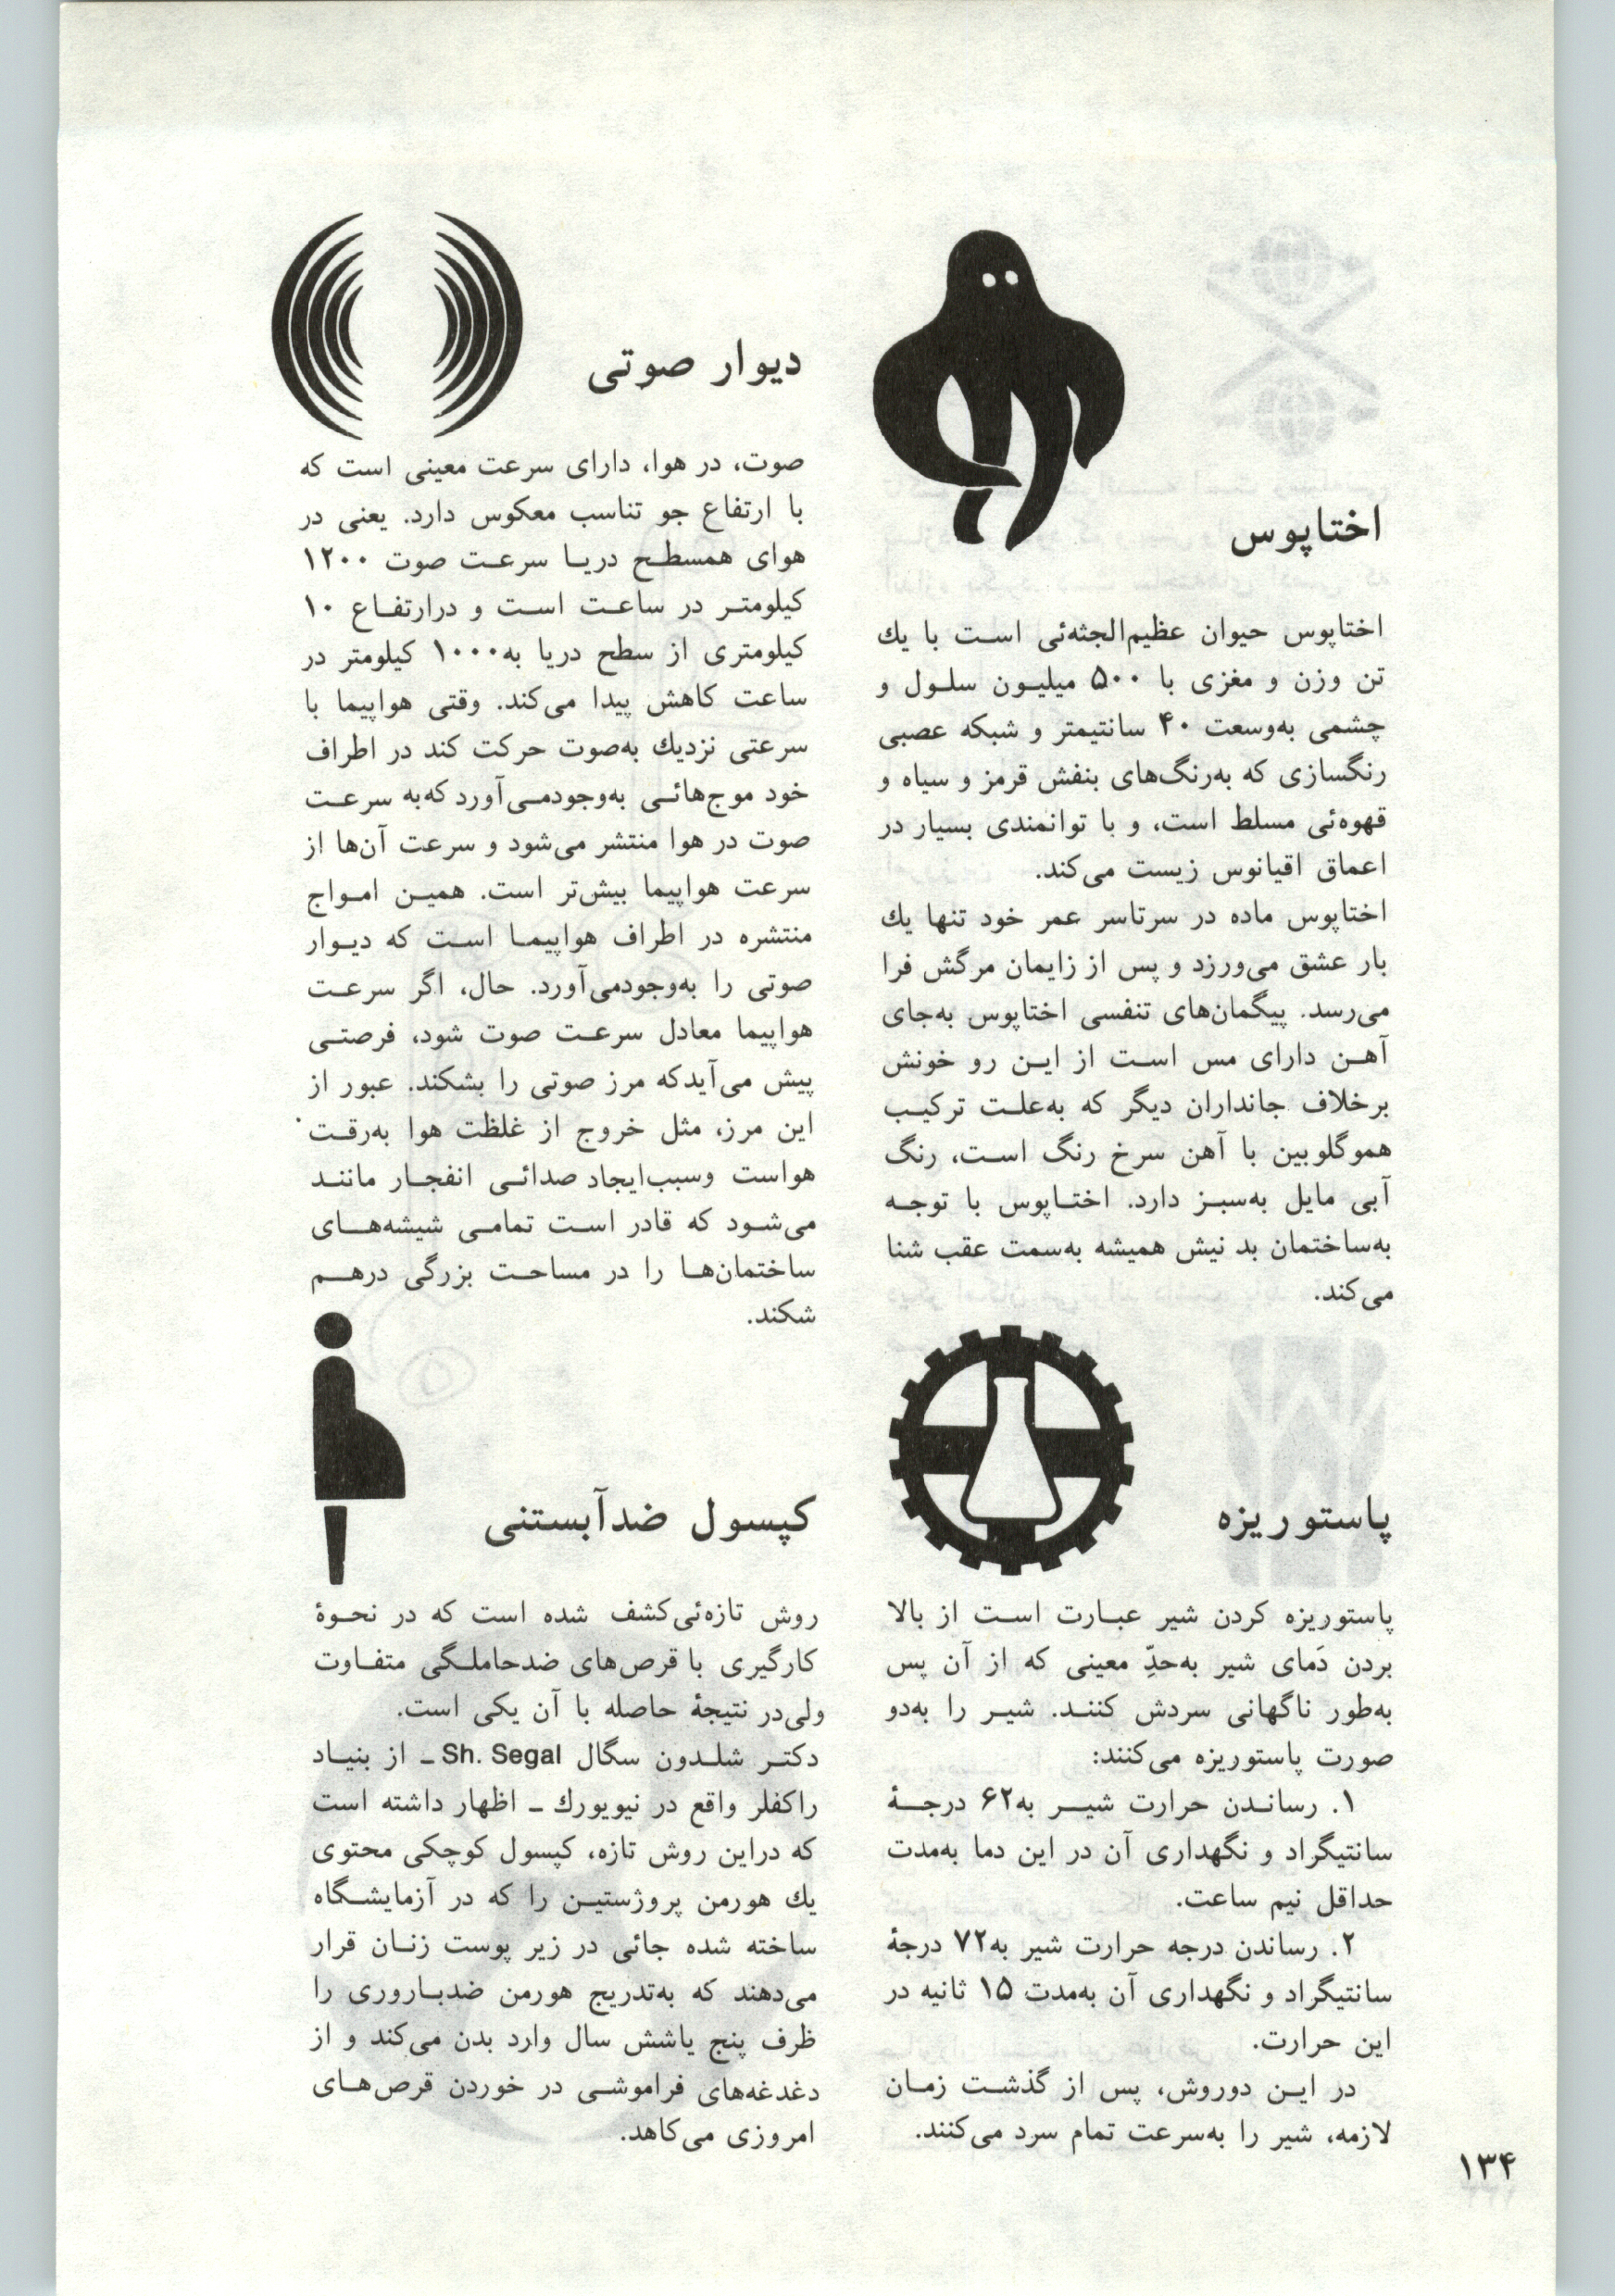 اختاپوس
اختاپوس حیوان عظیم‌الجثه‌ئی است با یك
تن وزن و مغزی با ۵۰۰ میلیون سلول و
چشمی به‌وسعت ۴۰ سانتیمتر و شبکه عصبی
رنگسازی که به‌رنگ‌های بنفش قرمز و سیاه و
قهوه‌ئی مسلط است، و با توانمندی بسیار در
اعماق اقیانوس زیست می‌کند.
اختاپوس ماده در سرتاسر عمر خود تنها یك
بار عشق می‌ورزد و پس از زایمان مرگش فرا
می‌رسد. پیگمان‌های تنفسی اختاپوس به‌جای
آهن دارای مس است از این رو خونش
برخلاف جانداران دیگر که به‌علت ترکیب
هموگلوبین با آهن سرخ رنگ است، رنگ
آبی مایل به‌سبز دارد. اختاپوس با توجه
به‌ساختمان بد نیش همیشه به‌سمت عقب شنا
می‌کند.
پاستوریزه
پاستوریزه کردن شیر عبارت است از بالا
بردن دَمای شیر به‌حدِّ معینی که از آن پس
به‌طور ناگهانی سردش کنند. شیر را به‌دو
صورت پاستوریزه می‌کنند:
۱. رساندن حرارت شیر به۶۲ درجهٔ
سانتیگراد و نگهداری آن در این دما به‌مدت
حداقل نیم ساعت.
۲. رساندن درجه حرارت شیر به۷۲ درجهٔ
سانتیگراد و نگهداری آن به‌مدت ۱۵ ثانیه در
این حرارت.
در این دوروش، پس از گذشت زمان
لازمه، شیر را به‌سرعت تمام سرد می‌کنند.
دیوار صوتی
صوت، در هوا، دارای سرعت معینی است که
با ارتفاع جو تناسب معکوس دارد. یعنی در
هوای همسطح دریا سرعت صوت ۱۲۰۰
کیلومتر در ساعت است و درارتفاع ۱۰
کیلومتری از سطح دریا به۱۰۰۰ کیلومتر در
ساعت کاهش پیدا می‌کند. وقتی هواپیما با
سرعتی نزدیك به‌صوت حرکت کند در اطراف
خود موج‌هائی به‌وجودمی‌آورد که‌به سرعت
صوت در هوا منتشر می‌شود و سرعت آن‌ها از
سرعت هواپیما بیش‌تر است. همین امواج
منتشره در اطراف هواپیما است که دیوار
صوتی را به‌وجودمی‌آورد. حال، اگر سرعت
هواپیما معادل سرعت صوت شود، فرصتی
پیش می‌آیدکه مرز صوتی را بشکند. عبور از
این مرز، مثل خروج از غلظت هوا به‌رقت
هواست وسبب‌ایجاد صدائی انفجار مانند
می‌شود که قادر است تمامی شیشه‌های
ساختمان‌ها را در مساحت بزرگی درهم
شکند.
کپسول ضدآبستنی
روش تازه‌ئی‌کشف شده است که در نحوهٔ
کارگیری با قرص‌های ضدحاملگی متفاوت
ولی‌در نتیجهٔ حاصله با آن یکی است.
دکتر شلدون سگال Sh. Segal ـ از بنیاد
راکفلر واقع در نیویورك ـ اظهار داشته است
که دراین روش تازه، کپسول کوچکی محتوی
یك هورمن پروژستین را که در آزمایشگاه
ساخته شده جائی در زیر پوست زنان قرار
می‌دهند که به‌تدریج هورمن ضدباروری را
ظرف پنج یاشش سال وارد بدن می‌کند و از
دغدغه‌های فراموشی در خوردن قرص‌های
امروزی می‌کاهد.
۱۳۴